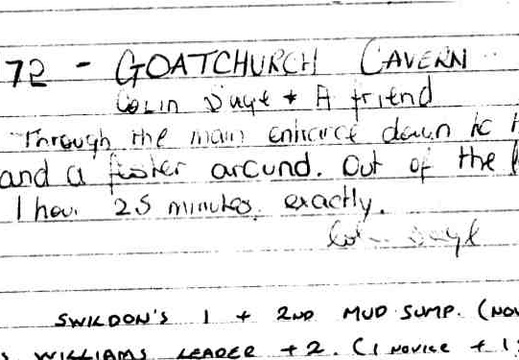 72 - GOATCHURCH CAVERN
COLIN & A friend
Through the main entrance down to
and a foster around. Out of the
1 hour 25 minutes, exactly.
SWILDON'S 1 + 2ND MUD SUMP. (NOV
WILLIAMS LEADER + 2. (1 NOVICE + 1